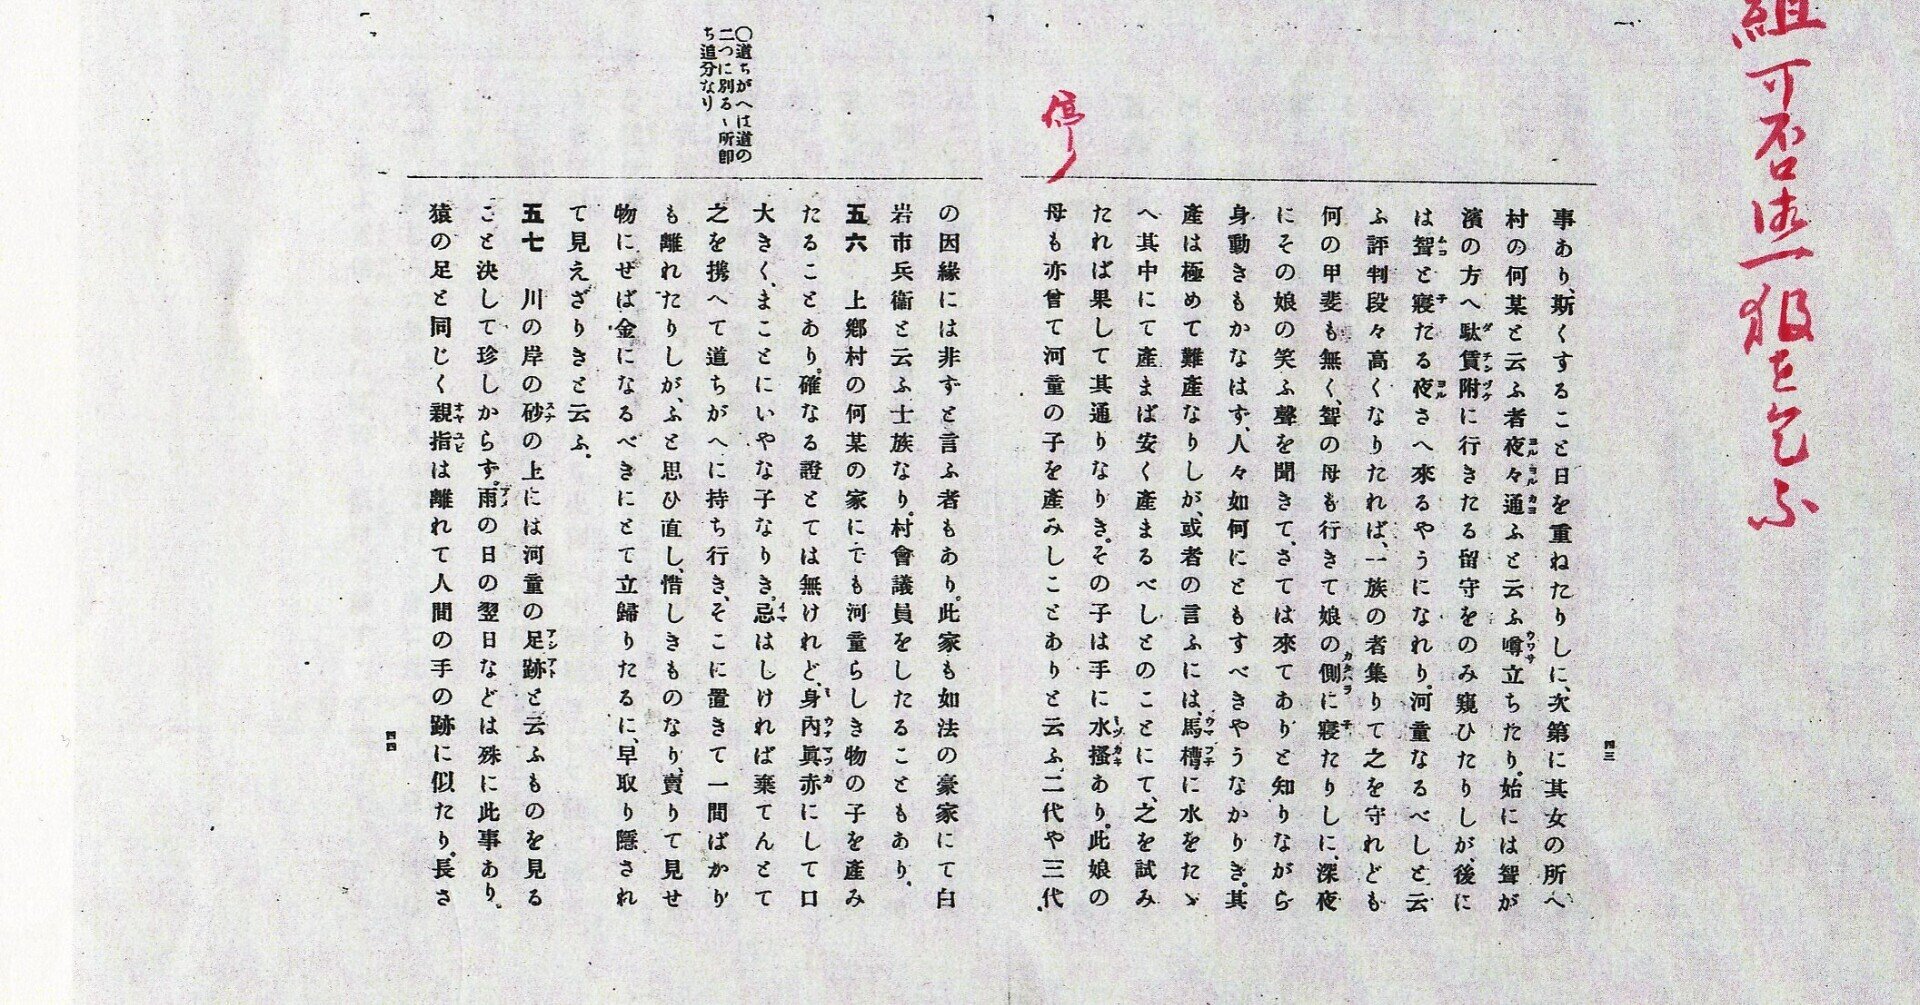 事あり、斯くすること日を重ねたりしに、次第に其女の所へ
村の何某と云ふ者夜々通ふと云ふ噂立ちたり。始には聟が
濱の方へ駄賃附に行きたる留守をのみ窺ひたりしが、後に
は聟と寢たる夜さへ來るやうになれり。河童なるべしと云
ふ評判段々高くなりたれば、一族の者集りて之を守れども
何の甲斐も無く、聟の母も行きて娘の側に寢たりしに、深夜
にその娘の笑ふ聲を聞きて、さては來てありと知りながら
身動きもかなはず、人々如何にともすべきやうなかりき。其
產は極めて難產なりしが、或者の言ふには、馬槽に水をたゝ
へ其中にて產まば安く產まるべしとのことにて、之を試み
たれば果して其通りなりき。その子は手に水搔あり。此娘の
母も亦曾て河童の子を產みしことありと云ふ。二代や三代
四三
の因緣には非ずと言ふ者もあり。此家も如法の豪家にて白
岩市兵衞と云ふ士族なり。村會議員をしたることもあり。
五六　上鄕村の何某の家にても河童らしき物の子を產み
たることあり。確なる證とては無けれど、身內眞赤にして口
大きく、まことにいやな子なりき。忌はしければ棄てんとて
之を携へて道ちがへに持ち行き、そこに置きて一間ばかり
も離れたりしが、ふと思ひ直し、惜しきものなり、賣りて見せ
物にせば金になるべきにとて立歸りたるに、早取り隱され
て見えざりきと云ふ。
五七　川の岸の砂の上には河童の足跡と云ふものを見る
こと決して珍しからず。雨の日の翌日などは殊に此事あり。
猿の足と同じく親指は離れて人間の手の跡に似たり。長さ
四四
〇道ちがへは道の
二つに別るゝ所卽
ち追分なり